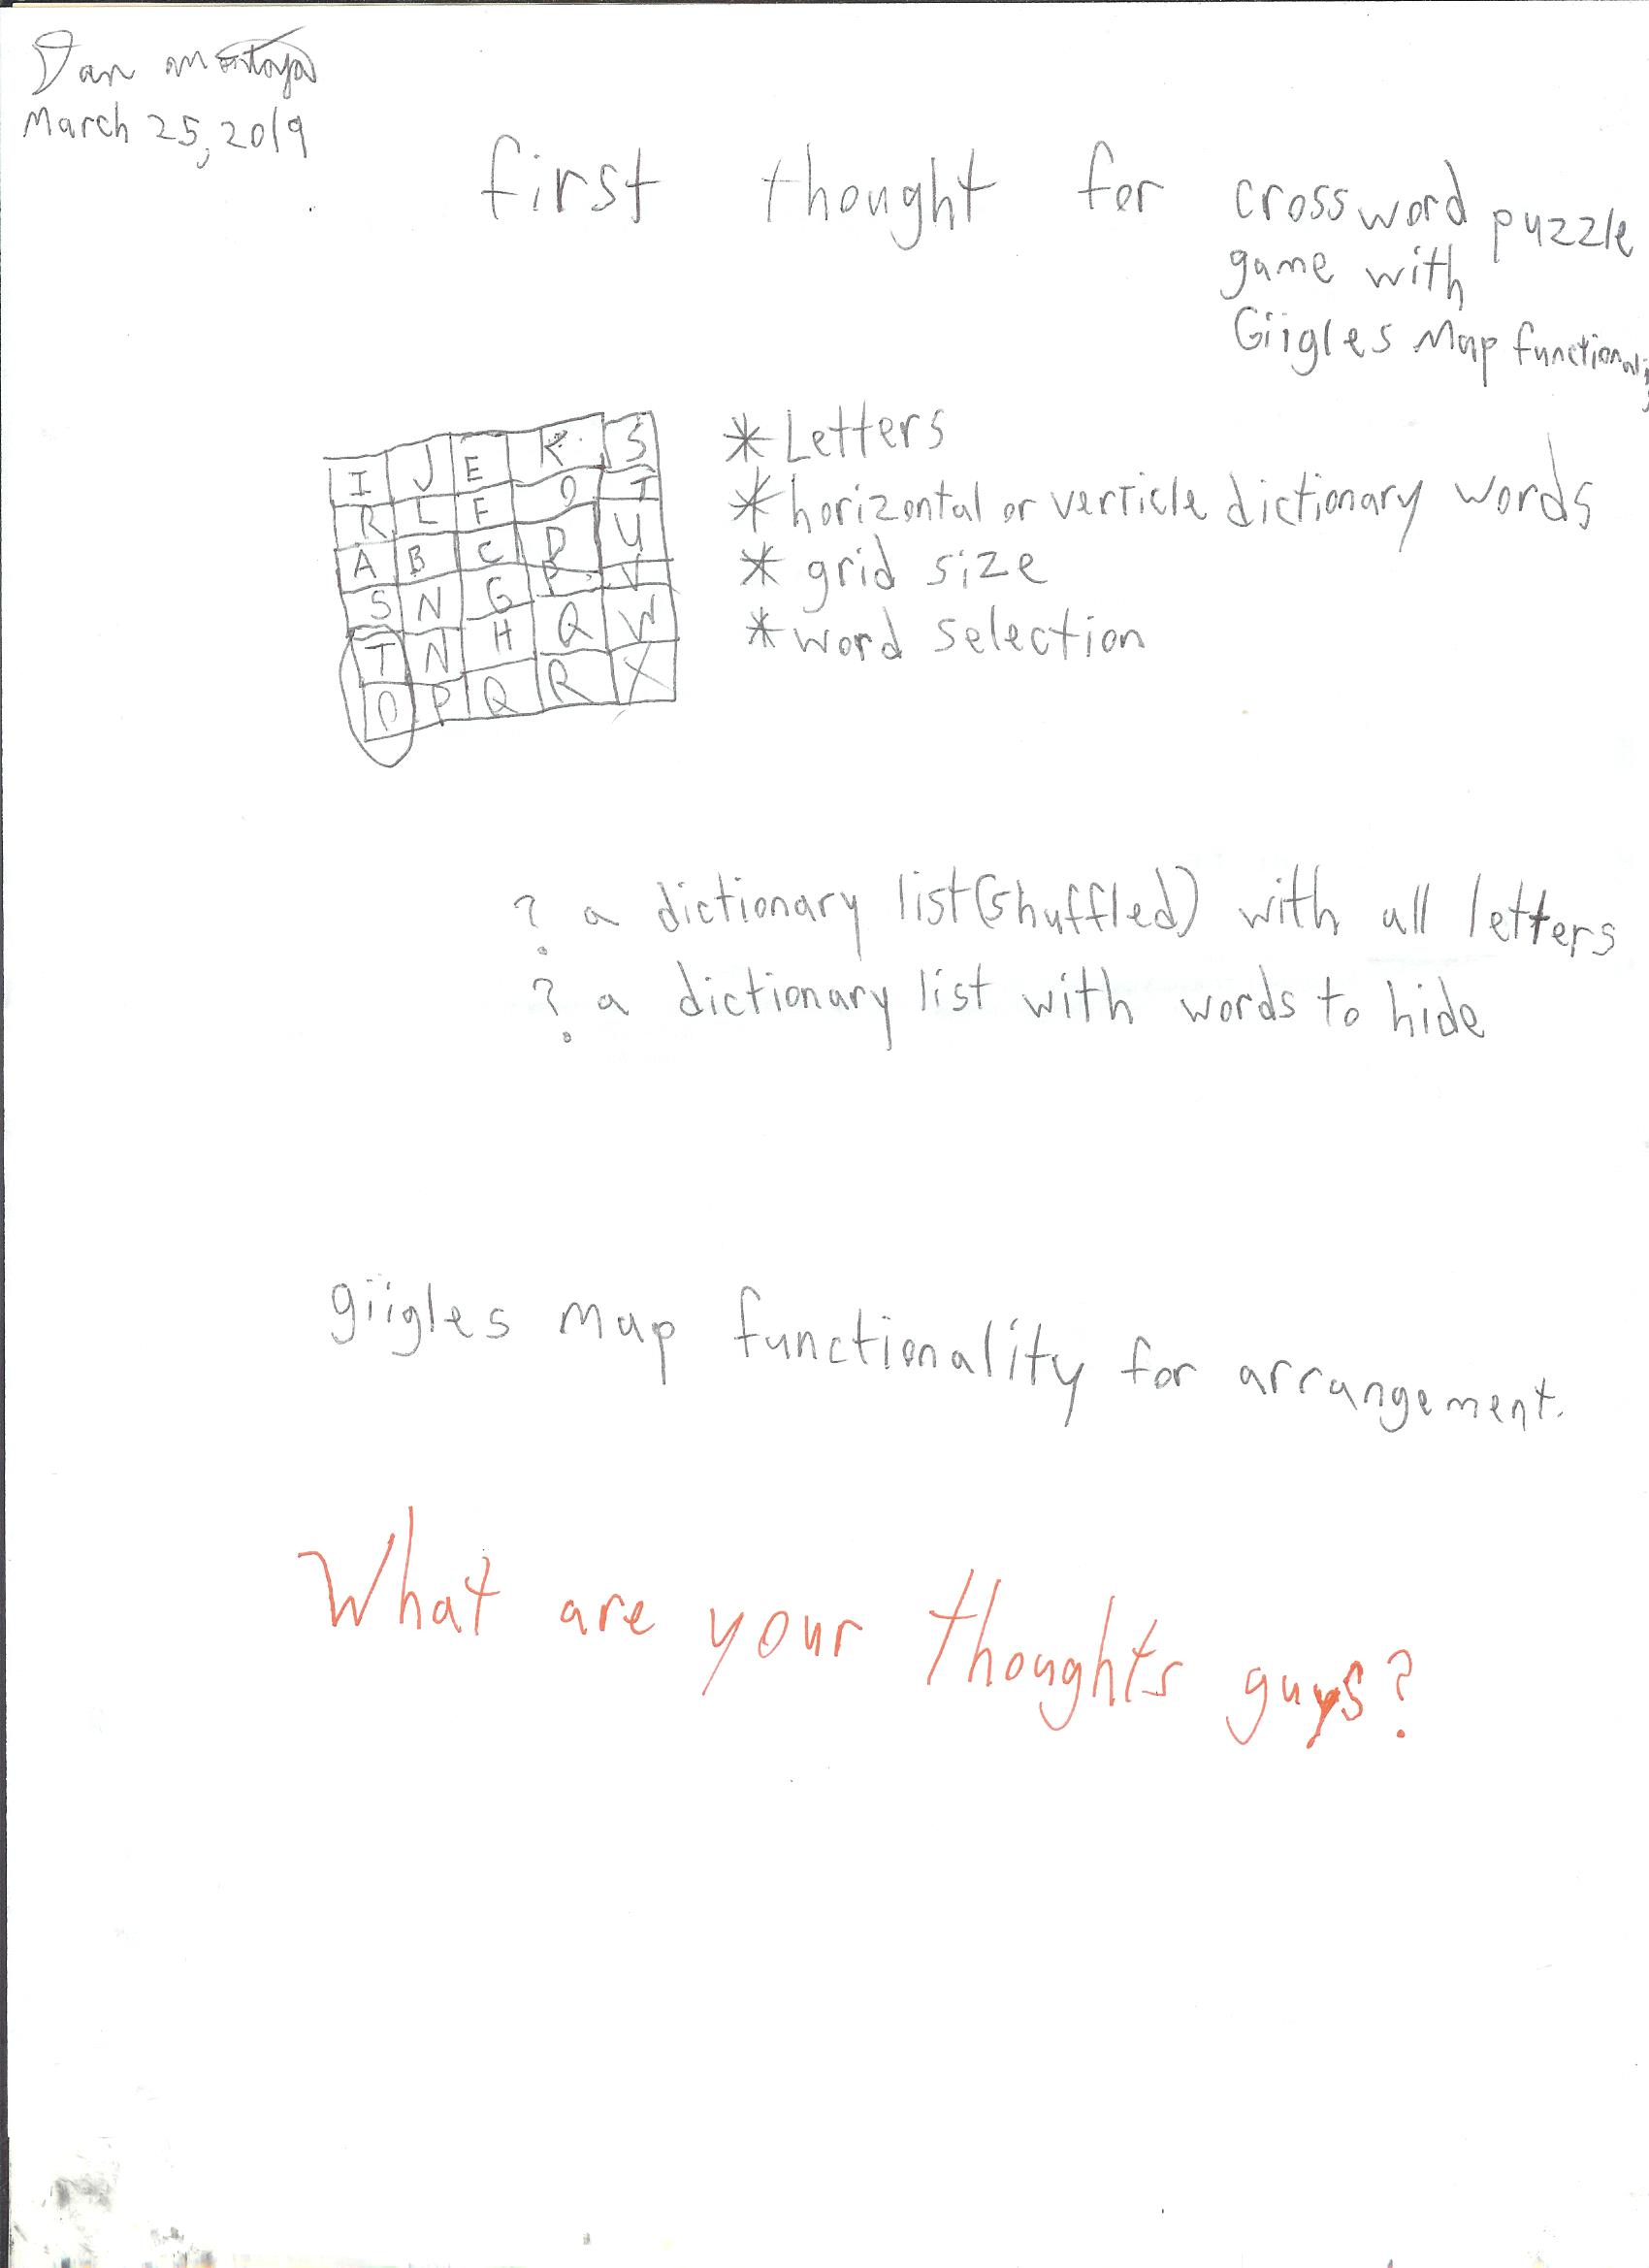 Dan
March 25, 2019
first thought for crossword puzzle
game with
Giigles Map functionali
I J E K S
R L F O T
A B C D U
S N G P V
T N H Q W
O P Q R X
* Letters
* horizontal or verticle dictionary words
* grid size
* word selection
? a dictionary list(shuffled) with all letters
? a dictionary list with words to hide
giigles map functionality for arrangement.
What are your thoughts guys?